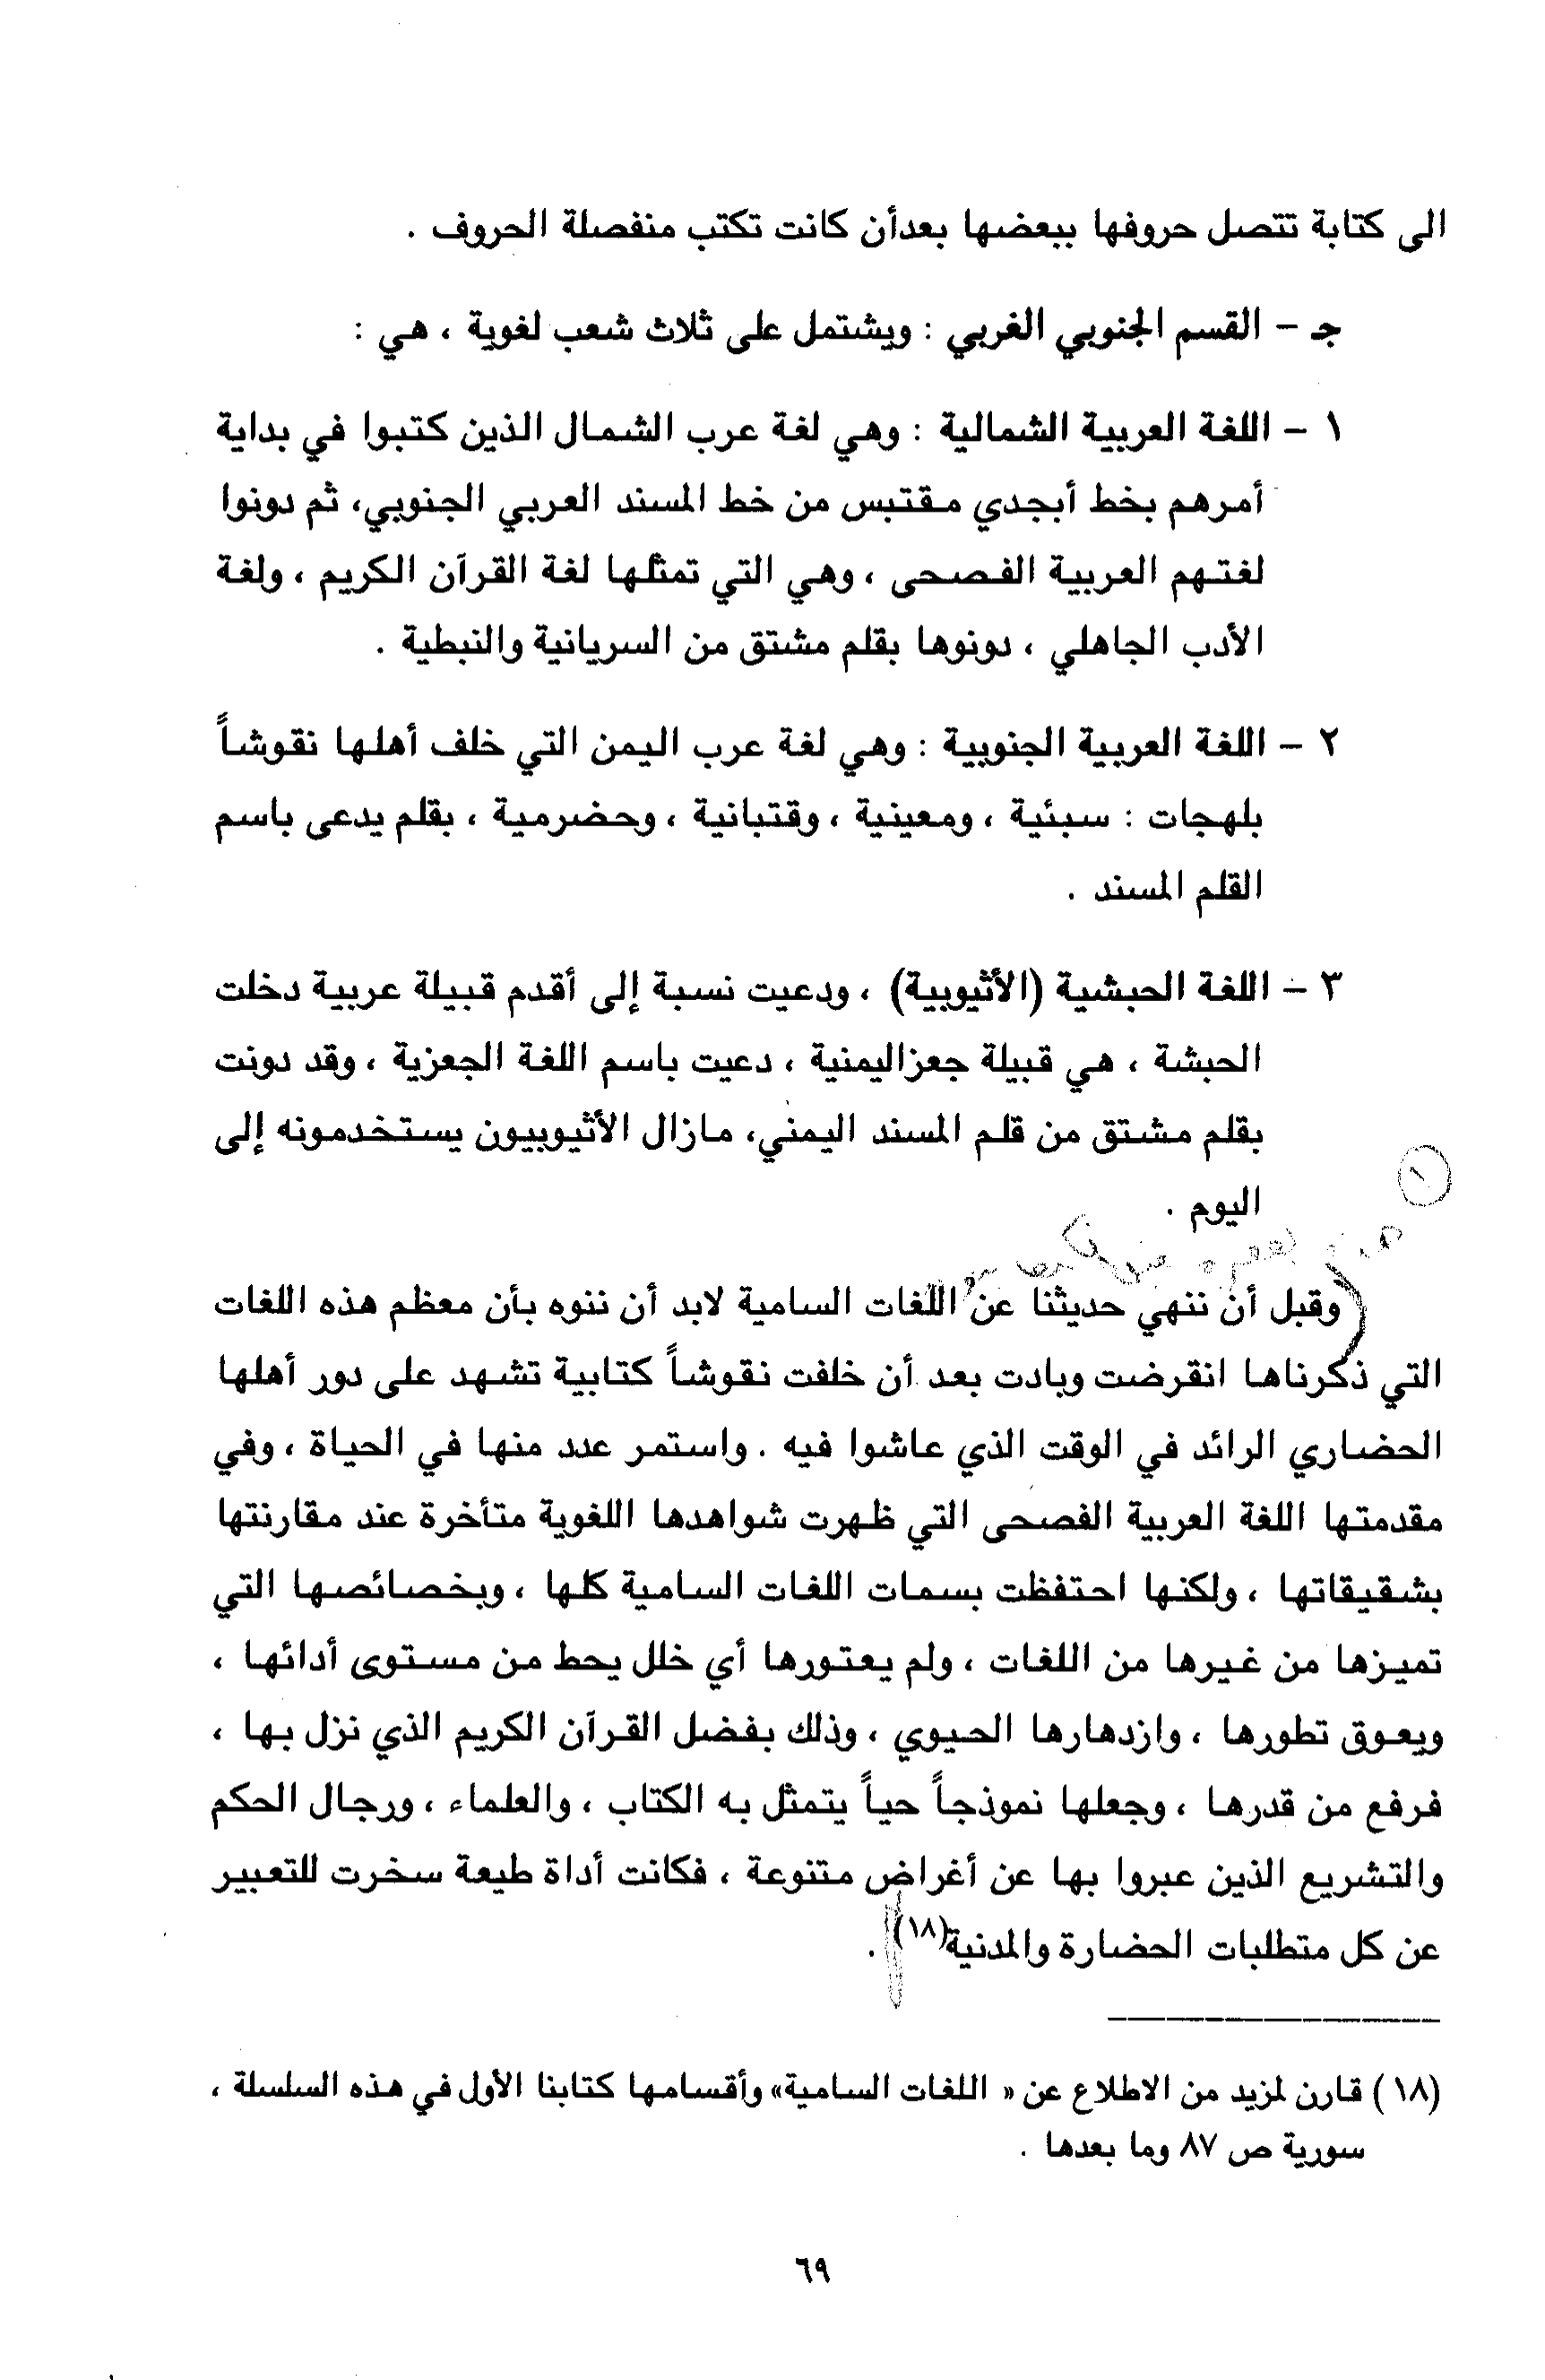 الى كتابة تتصل حروفها ببعضها بعدأن كانت تكتب منفصلة الحروف .
جـ - القسم الجنوبي الغربي : ويشتمل على ثلاث شعب لغوية ، هي :
١ - اللغة العربية الشمالية : وهي لغة عرب الشمال الذين كتبوا في بداية
أمرهم بخط أبجدي مقتبس من خط المسند العربي الجنوبي، ثم دونوا
لغتهم العربية الفصحى ، وهي التي تمثلها لغة القرآن الكريم ، ولغة
الأدب الجاهلي ، دونوها بقلم مشتق من السريانية والنبطية .
٢ - اللغة العربية الجنوبية : وهي لغة عرب اليمن التي خلف أهلها نقوشاً
بلهجات : سبئية ، ومعينية ، وقتبانية ، وحضرمية ، بقلم يدعى باسم
القلم المسند .
٣ - اللغة الحبشية (الأثيوبية) ، ودعيت نسبة إلى أقدم قبيلة عربية دخلت
الحبشة ، هي قبيلة جعزاليمنية ، دعيت باسم اللغة الجعزية ، وقد دونت
بقلم مشتق من قلم المسند اليمني، مازال الأثيوبيون يستخدمونه إلى
اليوم .
وقبل أن ننهي حديثنا عن اللغات السامية لابد أن ننوه بأن معظم هذه اللغات
التي ذكرناها انقرضت وبادت بعد أن خلفت نقوشاً كتابية تشهد على دور أهلها
الحضاري الرائد في الوقت الذي عاشوا فيه . واستمر عدد منها في الحياة ، وفي
مقدمتها اللغة العربية الفصحى التي ظهرت شواهدها اللغوية متأخرة عند مقارنتها
بشقيقاتها ، ولكنها احتفظت بسمات اللغات السامية كلها ، وبخصائصها التي
تميزها من غيرها من اللغات ، ولم يعتورها أي خلل يحط من مستوى أدائها ،
ويعوق تطورها ، وازدهارها الحيوي ، وذلك بفضل القرآن الكريم الذي نزل بها ،
فرفع من قدرها ، وجعلها نموذجاً حياً يتمثل به الكتاب ، والعلماء ، ورجال الحكم
والتشريع الذين عبروا بها عن أغراض متنوعة ، فكانت أداة طيعة سخرت للتعبير
عن كل متطلبات الحضارة والمدنية(١٨) .
(١٨) قارن لمزيد من الاطلاع عن « اللغات السامية» وأقسامها كتابنا الأول في هذه السلسلة ،
سورية ص ٨٧ وما بعدها .
٦٩